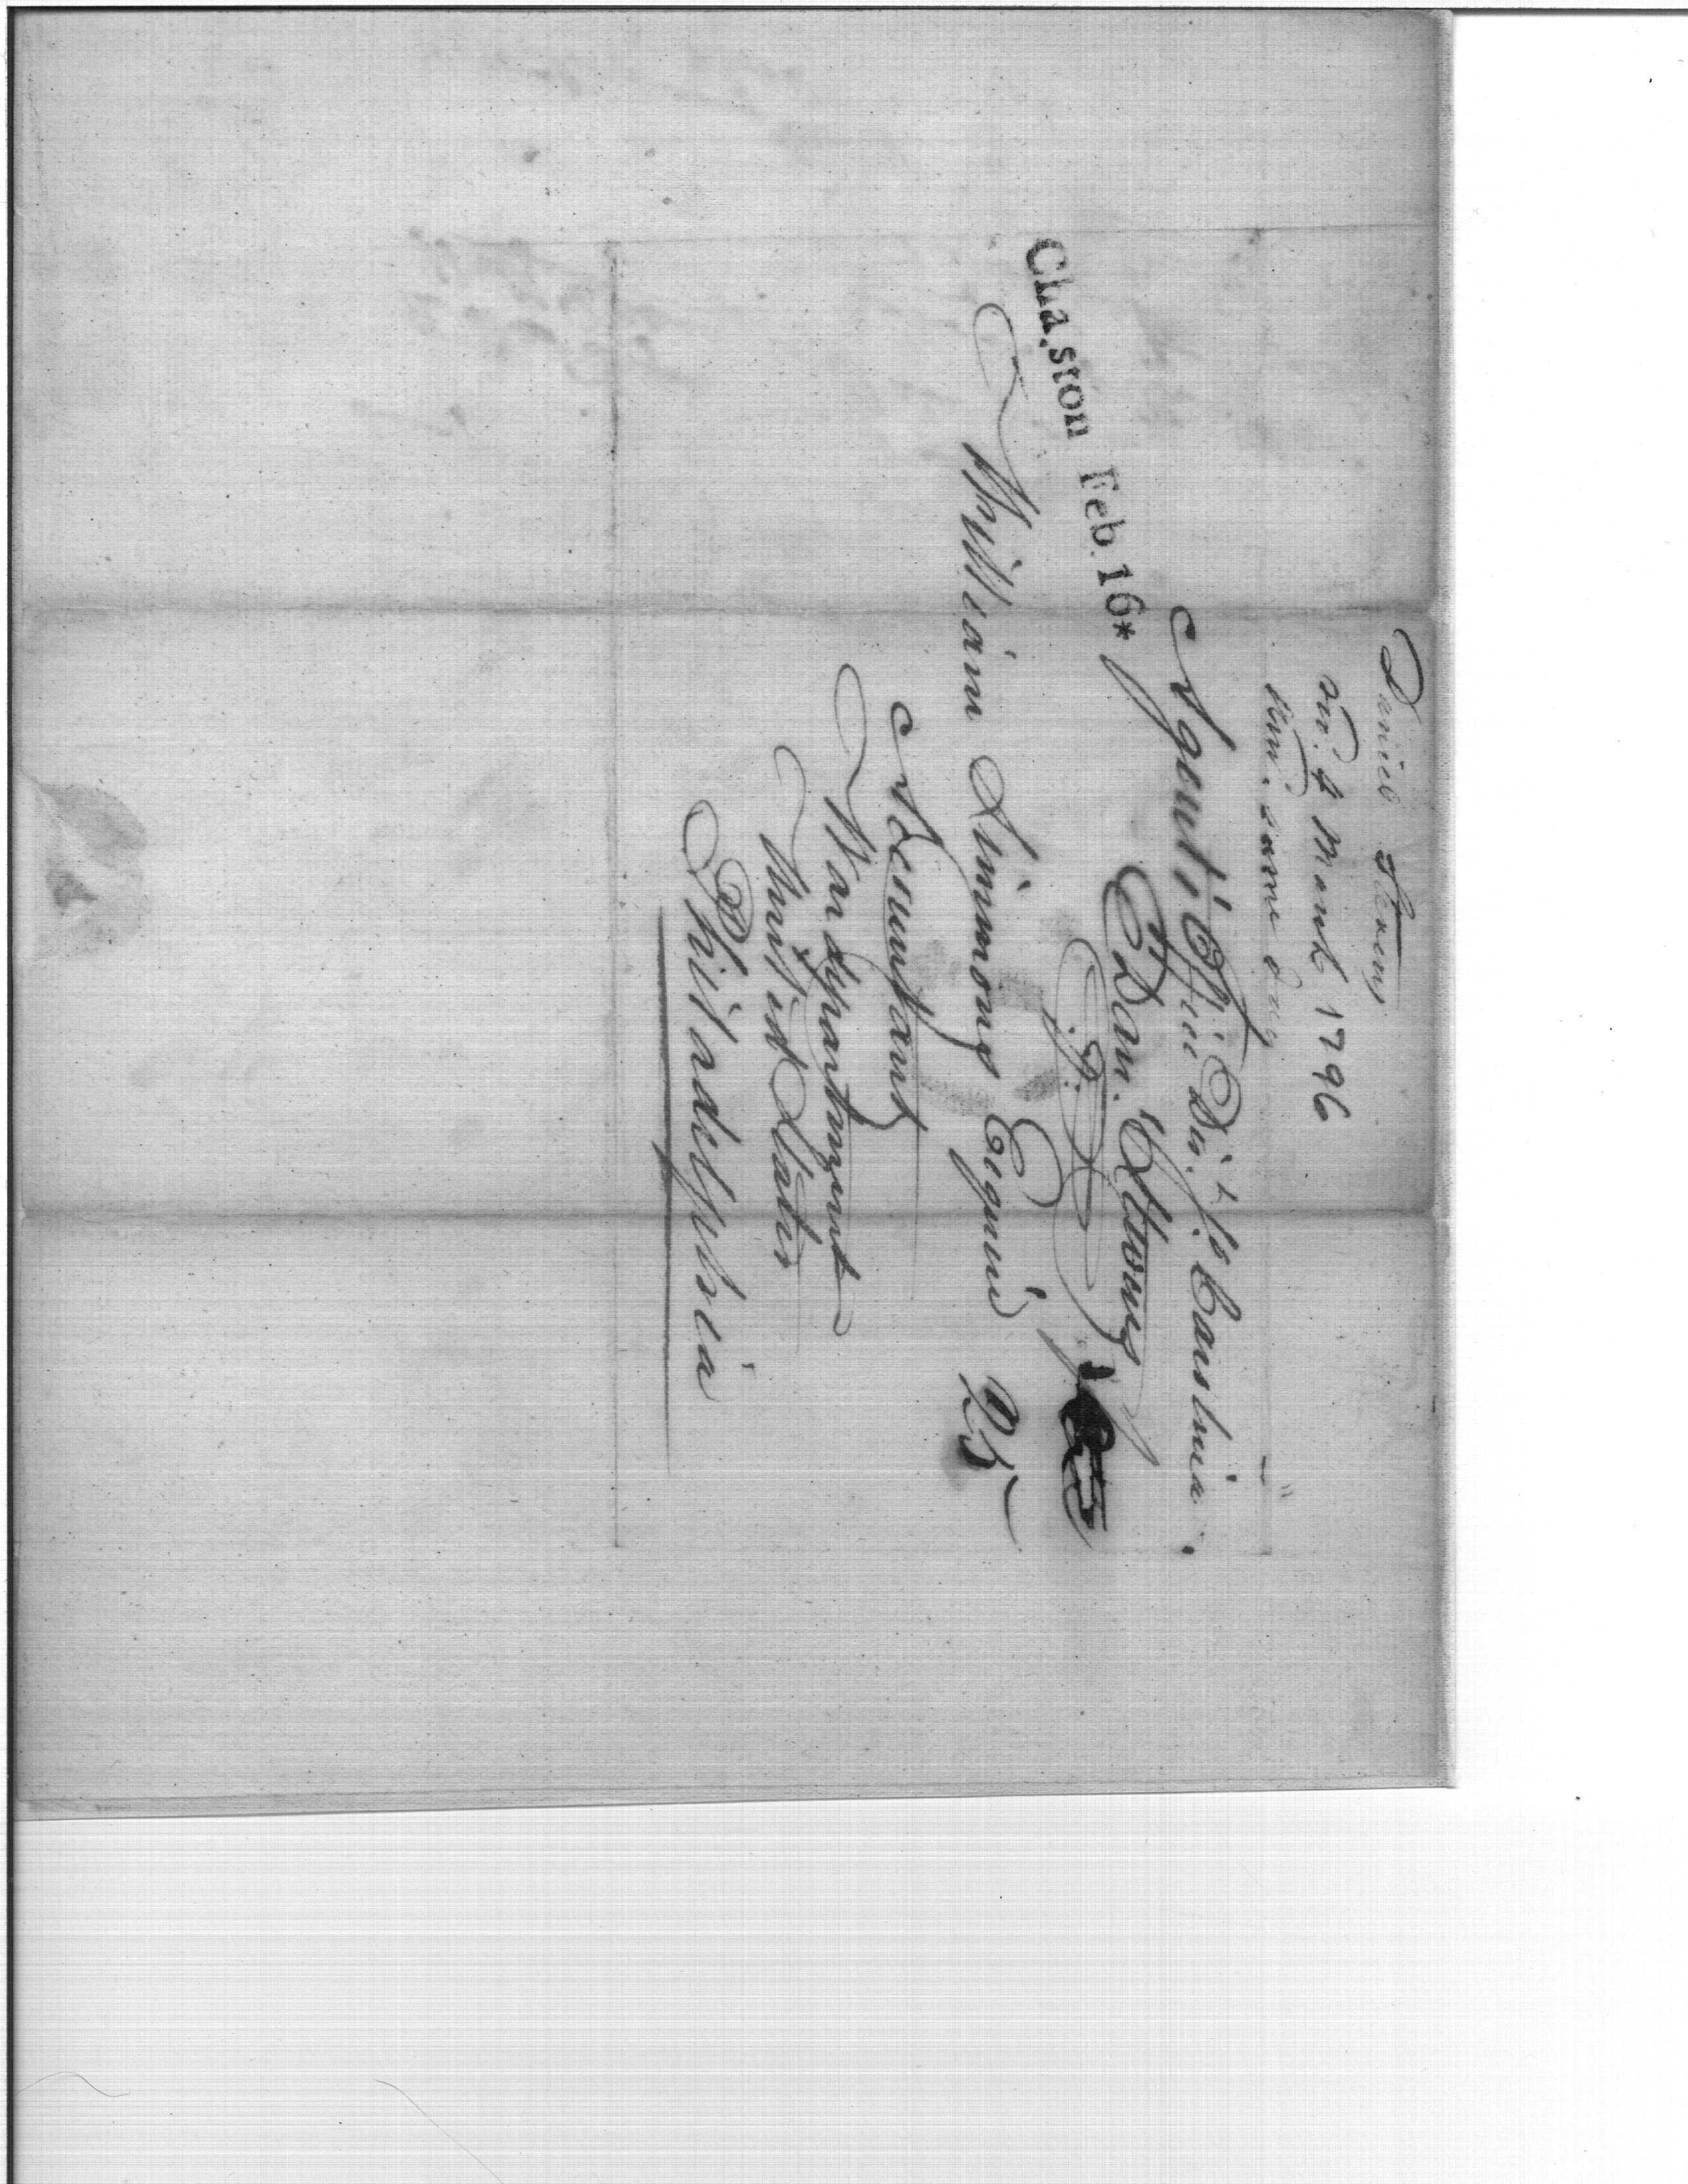 Daniel Stevens
4 March 1796
same day
Agents Office Dis.t So Carolina.
Dan. Stevens
CHa.ston Feb. 16*
William Simmons Esquire 25
Accountant
War department
United States
Philadelphia